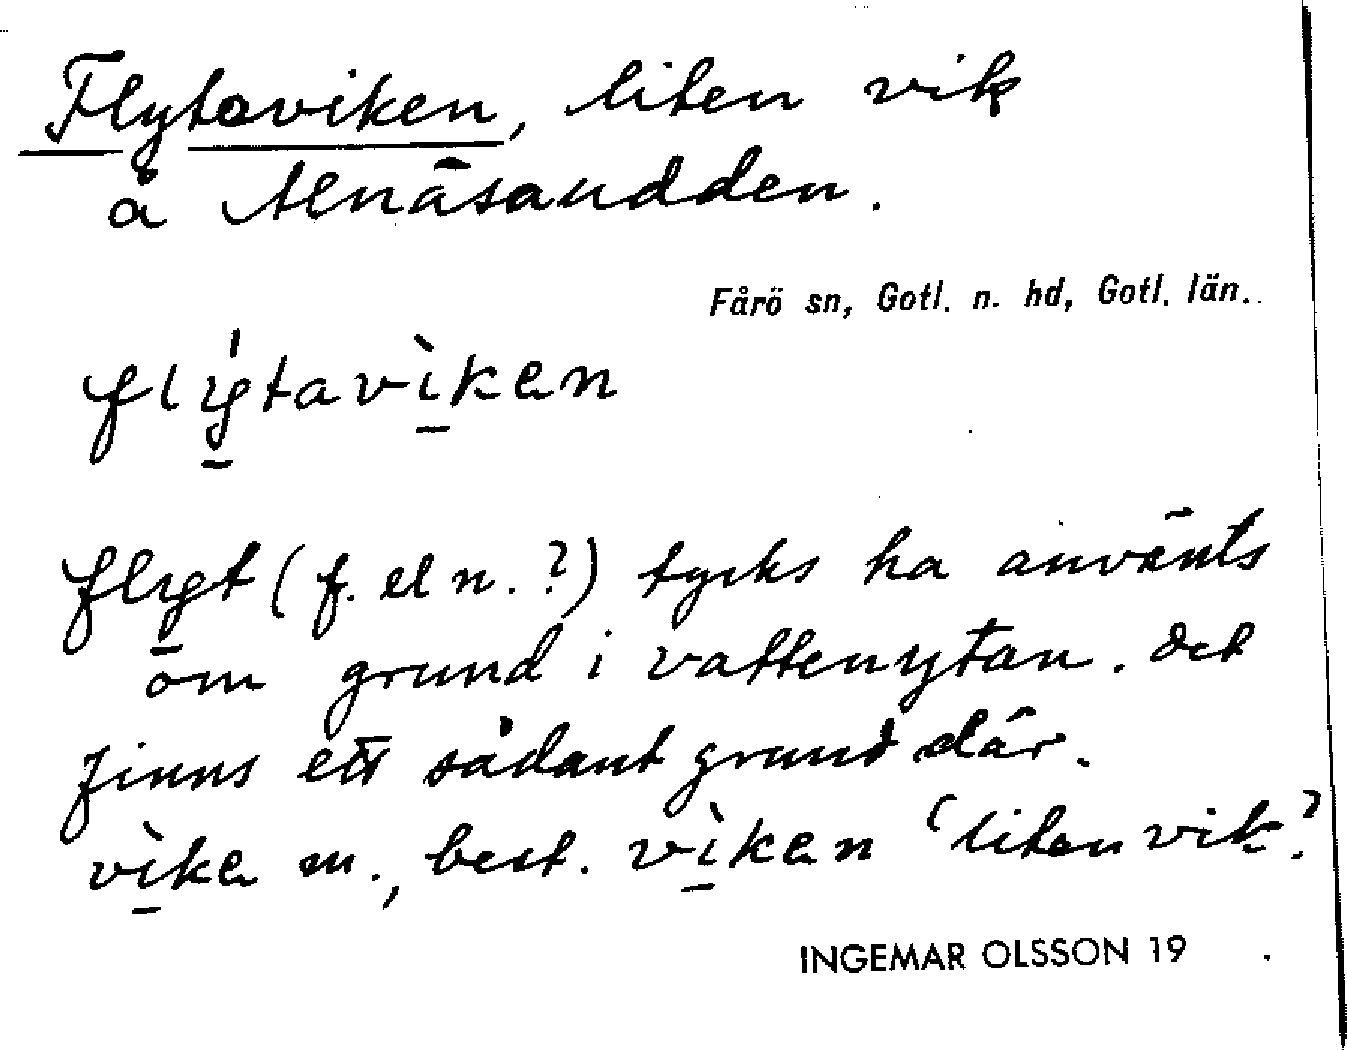 Flytaviken, liten vik
å Alnäsaudden.
Fårö sn, Gotl. n. hd, Gotl. län.
flý̱tavì̱ken
fly̱t (f. el n. ?) tycks ha använts
om grund i vattenytan. Det
finns ett sådant grund där.
vì̱ke m., best. vì̱ken ‘liten vik’.
INGEMAR OLSSON 19